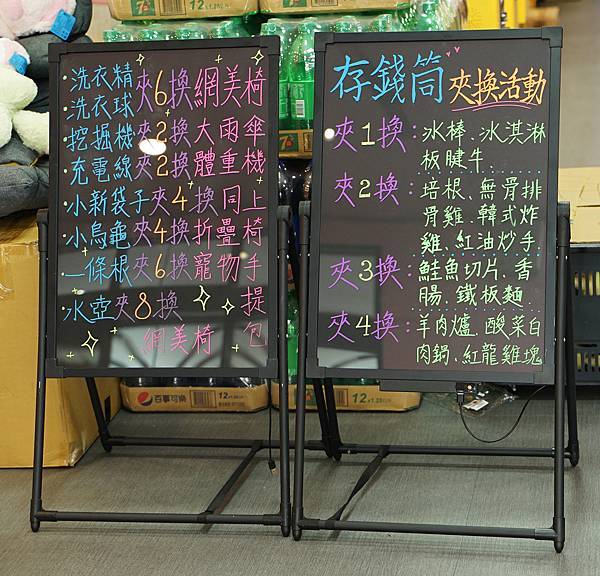 ·洗衣精
·洗衣球
夾6換網美椅
挖掘機夾2換大雨傘
充電線夾2換體重機
·小新袋子夾4換同上
小烏龜夾4換折疊椅
·一條根夾6換寵物手提包
水壺夾8換
網美椅
存錢筒 夾換活動
夾1換:冰棒、冰淇淋
板腱牛
夾2換:培根、無骨排
骨雞、韓式炸
雞、紅油炒手
夾3換:鮭魚切片、香
腸、鐵板麵
夾4換:羊肉爐、酸菜白
肉鍋、紅龍雞塊
百事可樂